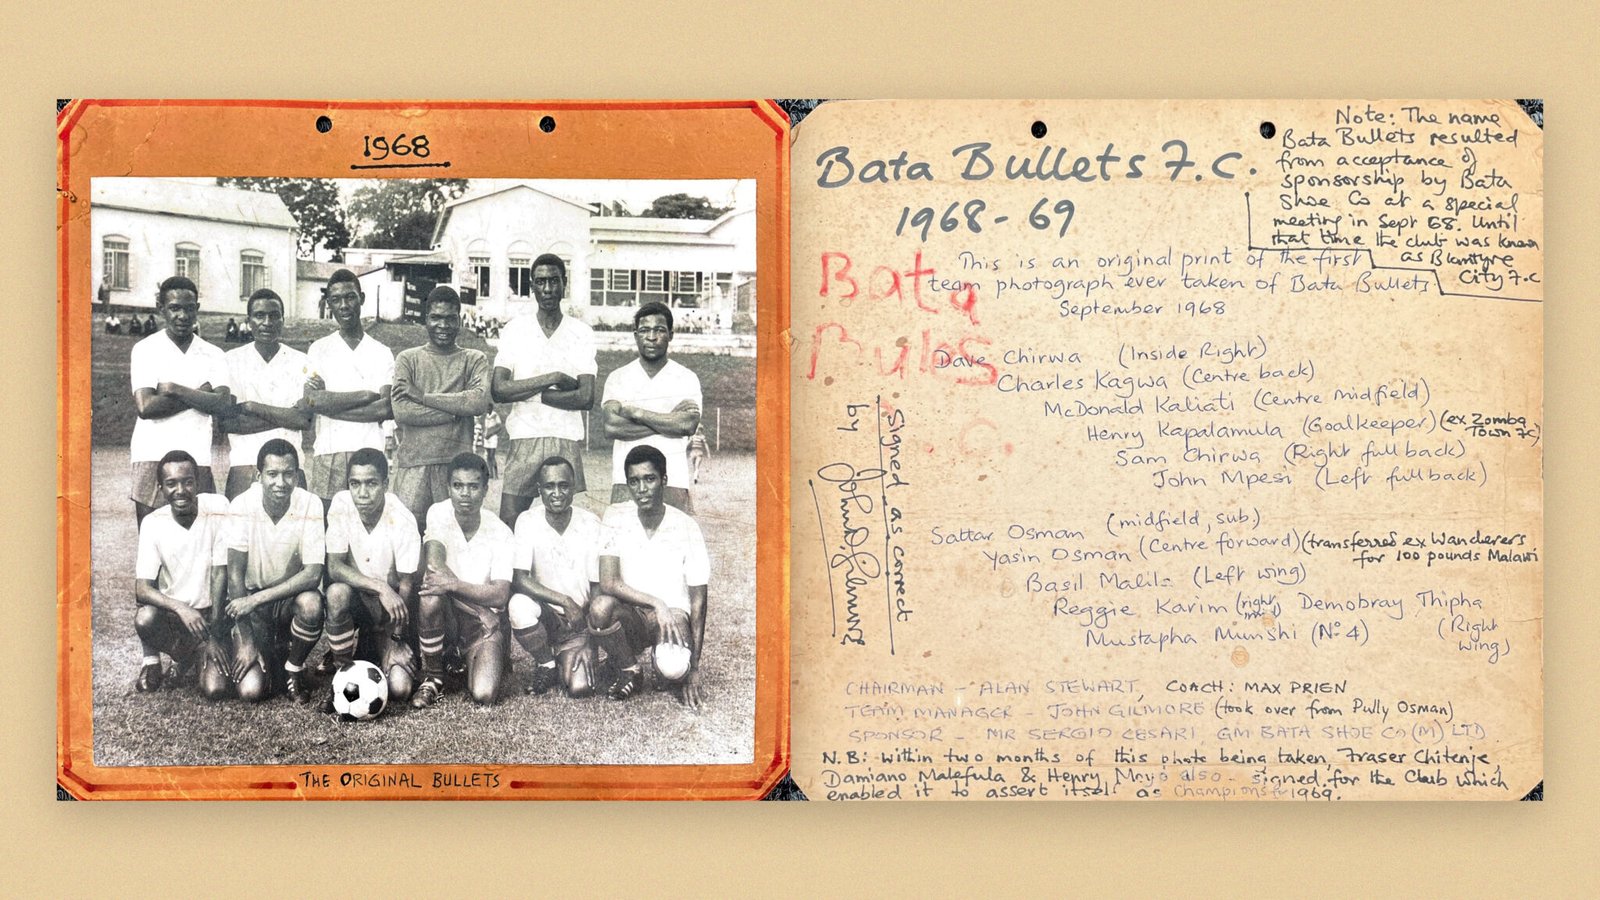 1968
THE ORIGINAL BULLETS
Bata Bullets F.C.
1968-69
Note: The name
Bata Bullets resulted
from acceptance of
sponsorship by Bata
Shoe Co at a special
meeting in Sept 68. Until
that time the club was known
as Blantyre
City F.C
This is an original print of the first
team photograph ever taken of Bata Bullets
September 1968
Bata
Bules
F.C.
Dave Chirwa (Inside Right)
Charles Kagwa (Centre back)
McDonald Kaliati (Centre midfield)
Henry Kapalamula (Goalkeeper) (ex Zomba
Town FC)
Sam Chirwa (Right full back)
John Mpesi (Left fullback)
Sattar Osman (midfield, sub.)
Yasin Osman (Centre forward) (transferred ex Wanderers
for 100 pounds Malawi
Basil Malila (Left wing)
Reggie Karim (right Demobray Thipha
(Right
wing)
Mustapha Munshi (Nº 4)
Signed as correct
by
CHAIRMAN - ALAN STEWART, COACH: MAX PRIEN
TEAM MANAGER - JOHN GILMORE (took over from Pully Osman)
SPONSOR - MR SERGIO CESARI, GM BATA SHOE Co (M) LTD
N.B: Within two months of this photo being taken, Fraser Chitenje,
Damiano Malefula & Henry Moyo also signed for the Club which
enabled it to assert itself as Champions for 1969.